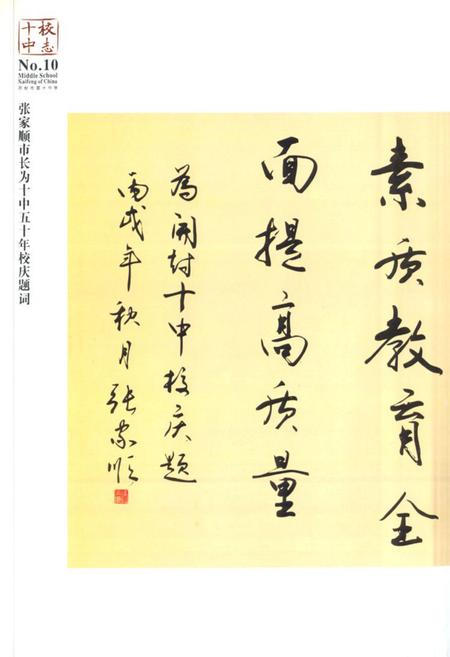 十中校志
No.10
Middle School
Kaifeng of China
开封市第十中学
张家顺市长为十中五十年校庆题词
素质教育全
面提高质量
為开封十中校庆题
丙戌年秋月张家顺